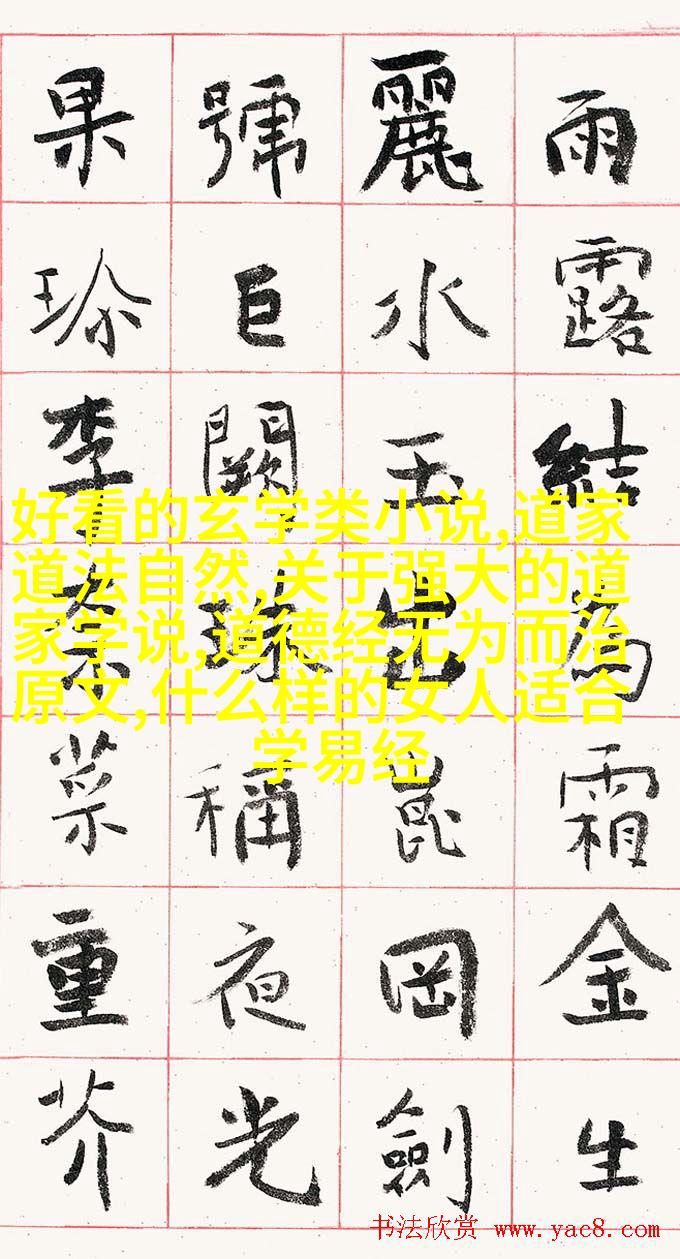 雨露結為霜金生
麗水玉出崑岡劍
號巨闕珠稱夜光
果珎李柰菜重芥
好看的玄学类小说,道家
道法自然,关于强大的道
家学说,道德经无为而治
原文,什么样的女人适合
学易经
书法欣赏 www.yac8.com